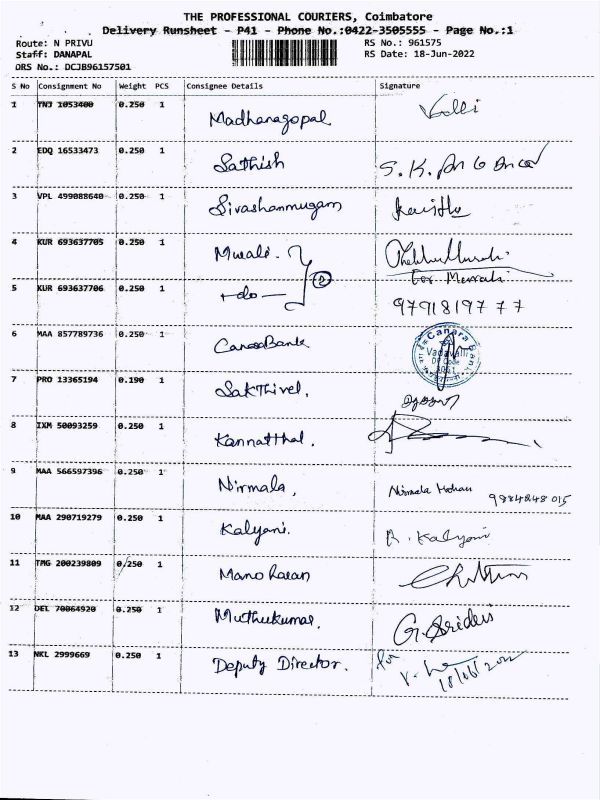 THE PROFESSIONAL COURIERS, Coimbatore
Delivery Runsheet - P41 - Phone No.:0422-3505555 - Page No.:1
Route: N PRIVU RS No.: 961575
Staff: DANAPAL RS Date: 18-Jun-2022
DRS No.: DCJB96157501
S No Consignment No Weight PCS Consignee Details Signature
1 TNJ 1053400 0.250 1 Madhanagopal Valli
2 EDQ 16533473 0.250 1 Sathish S.K.
3 VPL 499088640 0.250 1 Sivashanmugam
4 KUR 693637705 0.250 1 Murali. 2
for Murali
5 KUR 693637706 0.250 1 -do-
9791819777
6 MAA 857789736 0.250 1 CanaraBank Canara Bank
Vadavalli
DP Code
7 PRO 13365194 0.190 1 SakThivel,
8 IXM 50093259 0.250 1 Kannatthal.
9 MAA 566597396 0.250 1 Nirmala, Nirmala Mohan 9884848015
10 MAA 290719279 0.250 1 Kalyani. R. Kalyani
11 TMG 200239809 0.250 1 Manoharan
12 DEL 70064920 0.250 1 Muthukumar. G. Sridevi
13 NKL 2999669 0.250 1 Deputy Director. for